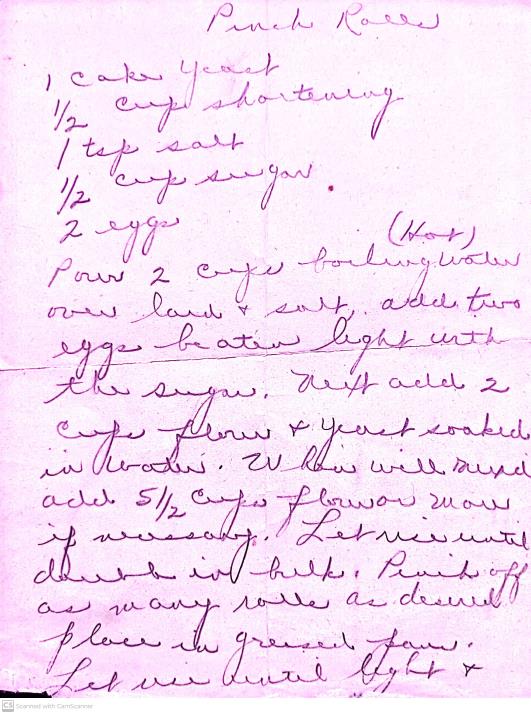 Pinch Rolls
1 cake yeast
1/2 cup shortening
1 tsp salt
1/2 cup sugar
2 eggs
(Hot)
Pour 2 cups boiling water
over lard + salt, add two
eggs beaten light with
the sugar. Next add 2
cups flour + yeast soaked
in water. When well mixed
add 5 1/2 cups flour or more
if necessary. Let rise until
double in bulk. Pinch off
as many rolls as desired
place in greased pan.
Let rise until light +
CS Scanned with CamScanner